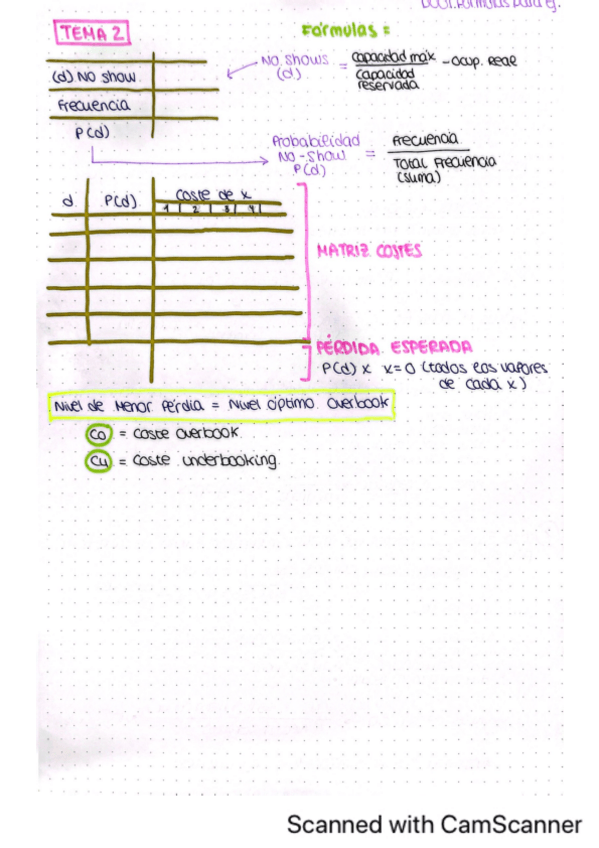 Doc1. Fórmulas para ej.
TEMA 2
Fórmulas =
(d) NO show
Frecuencia
P(d)
NO SHOWS (d) = capacidad max / capacidad reservada - Ocup. Real
Probabilidad NO-Show P(d) = Frecuencia / TOTAL Frecuencia (suma)
d P(d) coste de x
1 2 3 4
MATRIZ COSTES
PÉRDIDA ESPERADA
P(d) x x=0 (todos los valores
de cada x)
Nivel de Menor Pérdia = Nivel óptimo Overbook
Co = coste overbook
Cu = coste underbooking.
Scanned with CamScanner